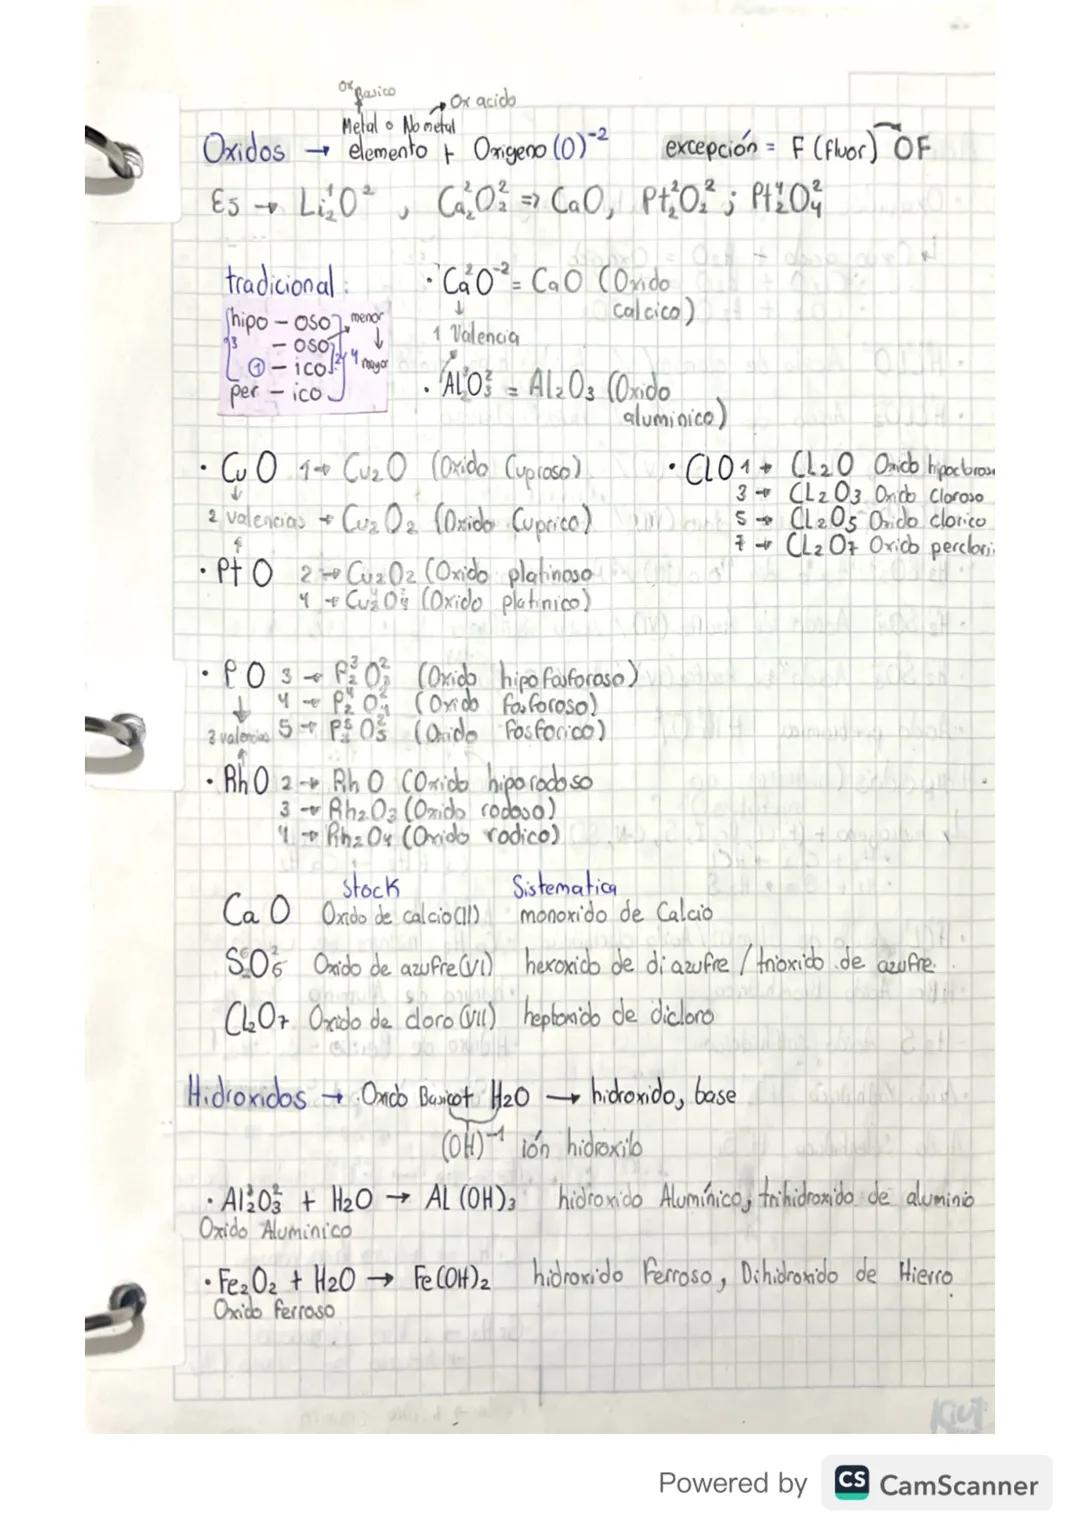 Ox Basico
Ox acido
Metal o No metal
Oxidos → elemento + Oxigeno (O)⁻² excepción = F (fluor) OF
Es → Li₂¹O², Ca₂²O₂² => CaO, Pt₂²O₂²; Pt₂⁴O₄²
tradicional:
hipo - oso menor
3 - oso
① - ico 2 4 mayor
per - ico
· Ca²O⁻² = CaO (Oxido
calcico)
↓
1 Valencia
· Al₂³O₃² = Al₂O₃ (Oxido
aluminico)
· CuO 1→ Cu₂O (Oxido Cuproso)
↓
2 valencias → Cu₂O₂ (Oxido Cuprico)
· PtO 2→ Cu₂O₂ (Oxido platinoso
4 → Cu₂⁴O₄² (Oxido platinico)
· CLO 1→ CL₂O Oxido hipocloroso
3 → CL₂O₃ Oxido cloroso
5 → CL₂O₅ Oxido clorico
7 → CL₂O₇ Oxido perclori
· PO 3 → P₂³O₃² (Oxido hipofosforoso)
↓ 4 → P₂⁴O₄² (Oxido fosforoso)
3 valencias 5 → P₂⁵O₅² (Oxido fosforico)
· RhO 2 → RhO (Oxido hiporodoso
3 → Rh₂O₃ (Oxido rodoso)
4 → Rh₂O₄ (Oxido rodico)
Stock Sistematica
CaO Oxido de calcio (II) monoxido de Calcio
S₂⁶O₆² Oxido de azufre (VI) hexoxido de diazufre / trioxido de azufre.
CL₂O₇ Oxido de cloro (VII) heptoxido de dicloro
Hidroxidos → Oxido Basico + H₂O → hidroxido, base
(OH)⁻¹ ión hidroxilo
· Al₂³O₃² + H₂O → AL(OH)₃ hidroxido Alumínico, trihidroxido de aluminio
Oxido Aluminico
· Fe₂O₂ + H₂O → Fe(OH)₂ hidroxido Ferroso, Dihidroxido de Hierro
Oxido ferroso
Kiut
Powered by CS CamScanner